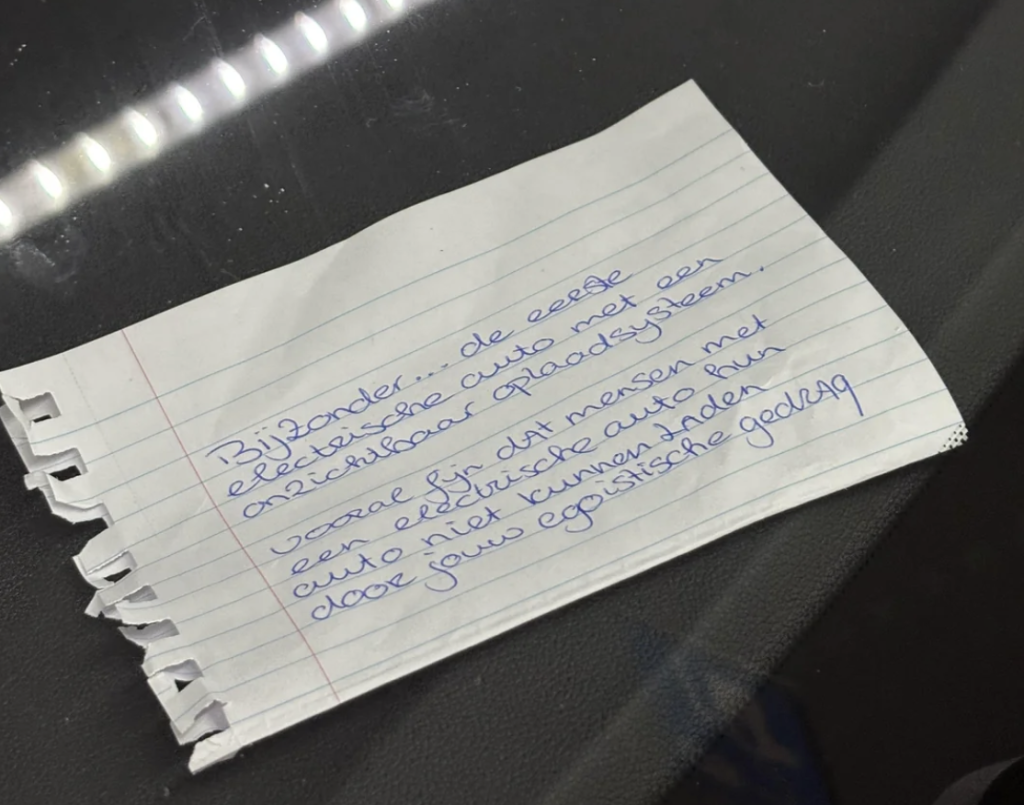 Bijzonder... de eerste
electrische auto met een
onzichtbaar oplaadsysteem.
vooral fijn dat mensen met
een electrische auto hun
auto niet kunnen laden
door jouw egoistische gedrag